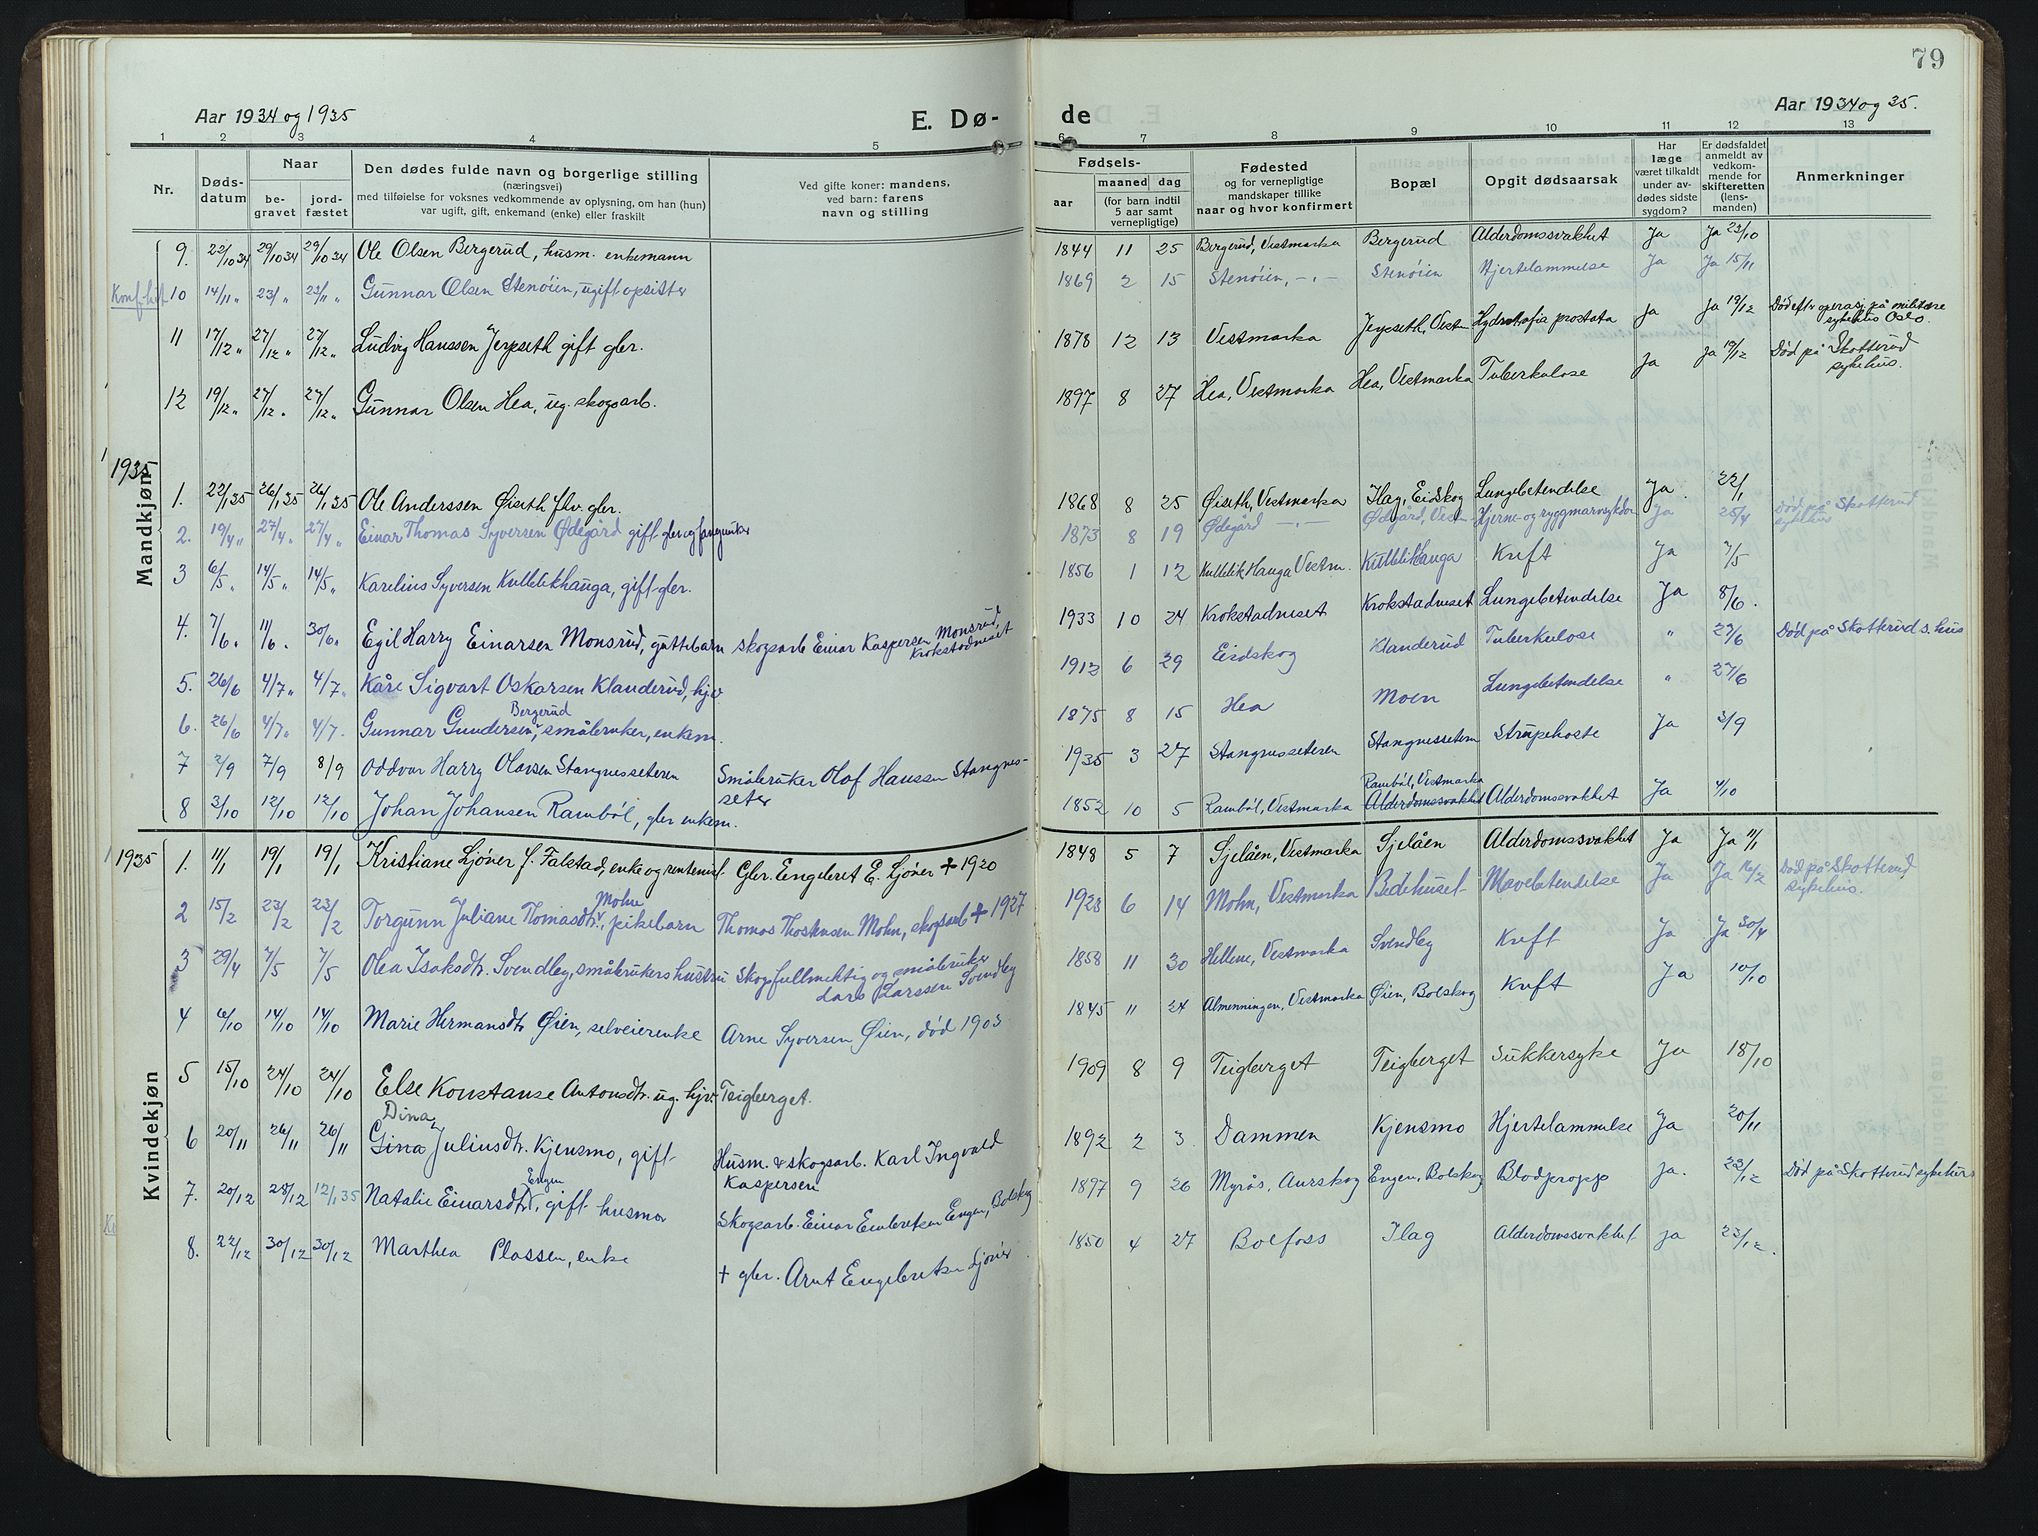 79
Aar 1934 og 1935
E. Dø-
de
Aar 1934 og 35.
1 2 3 4 5 6 7 8 9 10 11 12 13
Nr.
Dødsdatum
Naar
begravet
jordfæstet
Den dødes fulde navn og borgerlige stilling
(næringsvei)
med tilføielse for voksnes vedkommende av oplysning, om han (hun)
var ugift, gift, enkemand (enke) eller fraskilt
Ved gifte koner: mandens,
ved barn: farens
navn og stilling
Fødsels-
aar
maaned dag
(for barn indtil
5 aar samt
vernepligtige)
Fødested
og for vernepligtige
mandskaper tillike
naar og hvor konfirmert
Bopæl
Opgit dødsaarsak
Har
læge
været tilkaldt
under av-
dødes sidste
sygdom?
Er dødsfaldet
anmeldt av
vedkom-
mende for
skifteretten
(lens-
manden)
Anmerkninger
9. 22/10 34 29/10 34 29/10 34 Ole Olsen Bergerud, husm. enkemann 1844 11 25 Bergerud, Vestmarka Bergerud Alderdomssvakhet Ja Ja 23/10
10 14/11 „ 23/ „ 23/11 „ Gunnar Olsen Stenöien, ugift opsitter 1869 2 15 Stenöien, -„- Stenöien Hjertelammelse Ja Ja 15/11
11 17/12 „ 27/12 „ 27/12 „ Ludvig Hanssen Jerpseth gift gbr. 1878 12 13 Vestmarka Jerpseth, Vestm prostata Ja Ja 19/12 Död eftr operasj. på militære
sykehus Oslo.
12 19/12 „ 27/12 „ 27/12 „ Gunnar Olsen Hea, ug. skogsarb. 1897 8 27 Hea, Vestmarka Hea, Vestmarka Tuberkulose Ja Ja 19/12 Död på Skotterud
sykehus.
1935
Mandkjøn
1. 22/1 35 26/1 35 26/1 35 Ole Anderssen Öiseth fhv. gbr. 1868 8 25 Öiseth, Vestmarka Ilag, Eidskog Lungebetendelse Ja. 22/1
2. 19/4 „ 27/4 „ 27/4 „ Einar Thomas Syversen Ödegård gift gbr og 1873 8 19 Ödegård -„- Ödegård, Vestm Hjerne- og ryggmarvsykdom Ja 25/4 Död på Skotterud
sykehus
3 6/5 „ 14/5 „ 14/5 „ Karelius Syversen Kulblikhauga, gift gbr. 1856 1 12 Kulblik Hauga Vestm. KulblikHauga Kreft Ja 7/5
4. 7/6 „ 11/6 „ 30/6 „ Egil Harry Einarsen Monsrud, guttebarn skogsarb Einar Kaspersen Monsrud,
Krokstadneset 1933 10 24 Krokstadneset Krokstadneset Lungebetendelse Ja 8/6.
5. 26/6 4/7 „ 4/7 „ Kåre Sigvart Oskarsen Klanderud, hjv 1912 6 29 Eidskog Klanderud Tuberkulose „ 27/6 Död på Skotterud s. hus
6. 26/6 4/7 „ 4/7 „ Gunnar Gundersen Bergerud, småbruker, enkem. 1875 8 15 Hea Moen Lungebetendelse „ 27/6
7 2/9 7/9 8/9 Oddvar Harry Olavsen Stangnesseteren Småbruker Olaf Hanssen Stangnes-
seter 1935 3 27 Stangnesseteren Stangnesseteren Strupehoste Ja 3/9
8 3/10 12/10 12/10 Johan Johansen Ramböl, gbr enkem. 1852 10 5 Ramböl, Vestmarka Ramböl, Vestmarka
Alderdomssvakhet Alderdomssvakhet Ja 4/10
1935
Kvindekjøn
1. 11/1 19/1 19/1 Kristiane Ljöner f. Falstad, enke og rentenist. Gbr. Engebret E. Ljöner ✝ 1920 1848 5 7 Sjelåen, Vestmarka Sjelåen Alderdomssvakhet Ja Ja 11/1
2 15/2 23/2 23/2 Torgunn Juliane Thomasdtr. Mohn, pikebarn Thomas Mohn, skogsarb ✝ 1927 1928 6 14 Mohn, Vestmarka Bedehuset Mavebetendelse Ja Ja 16/2 Död på Skotterud
sykehus.
3 29/4 7/5 7/5 Olea Isaksdtr. Svendby, småbrukers hustru Skogfullmektig og småbruker
Lars Larssen Svendby 1858 11 30 Hellene, Vestmarka Svendby Kreft Ja Ja 30/4
4 6/10 14/10 14/10 Marie Hermansdtr Öien, selveierenke Arne Syversen Öien, död 1903 1845 11 24 Almenningen, Vestmarka Öien, Bolskog Kreft Ja 10/10
5 15/10 24/10 24/10 Else Konstanse Antonsdtr. ug. hjv. Teigberget. 1909 8 9 Teigberget Teigberget Sukkersyke Ja 18/10
6 20/11 26/11 26/11 Gina Dina Juliusdtr. Kjensmo, gift Husm. & skogsarb. Karl Ingvald
Kaspersen 1892 2 3. Dammen Kjensmo Hjertelammelse Ja 20/11
7. 20/12 28/12 12/1 35 Natalie Einarsdtr Engen, gift husmor Skogsarb. Einar Embretsen Engen, Bolskog 1897 9 26 Myrås, Aurskog Engen, Bolskog Blodpropp Ja. 23/12 Död på Skotterud sykehus
8. 22/12 30/12 30/12 Marthea Plassen, enke ✝ gbr. Arnt Engebretsen Ljöner 1850 4 27 Bolfoss Ilag Alderdomssvakhet Ja 23/12.